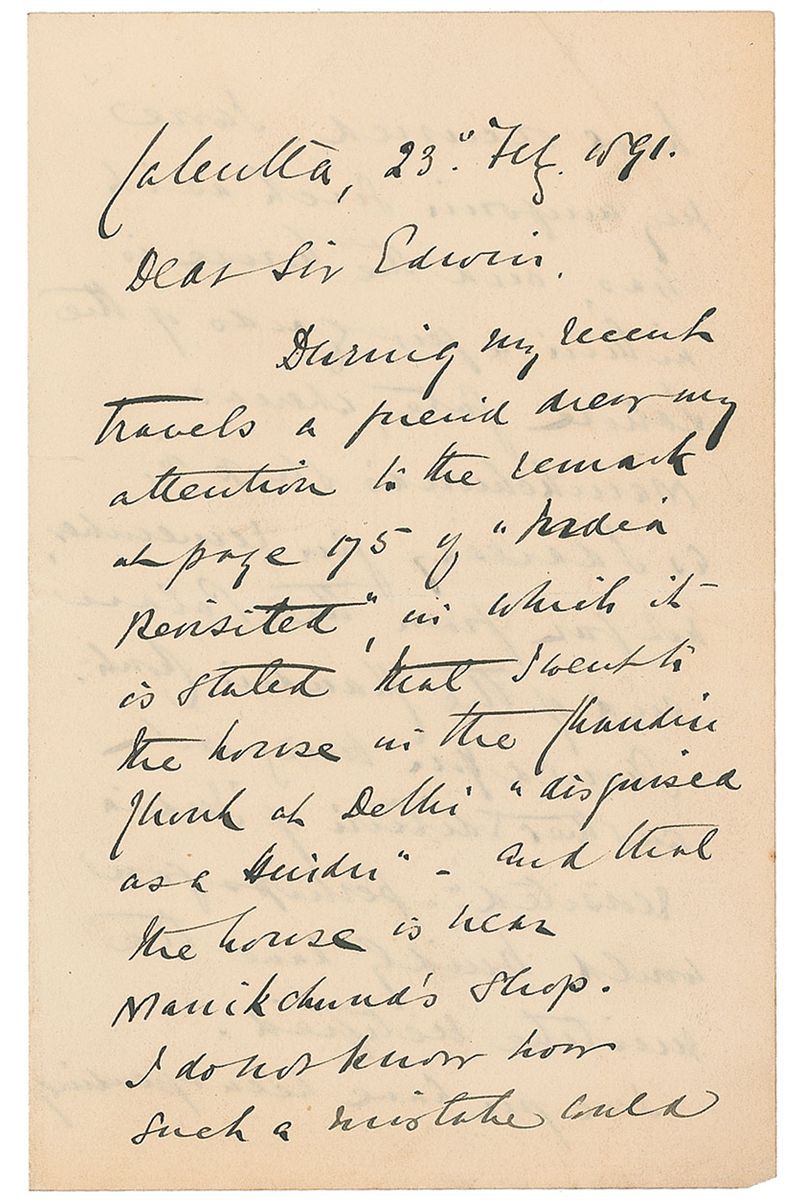 Calcutta, 23" Feb. 1891.
Dear Sir Edwin.
During my recent
travels a friend drew my
attention to the remark
at page 175 of "India
Revisited", in which it
is stated that I went to
the house in the Chandni
Chouk at Delhi "disguised
as a Hindu" - and that
the house is near
Manikchund's shop.
I do not know how
such a mistake could